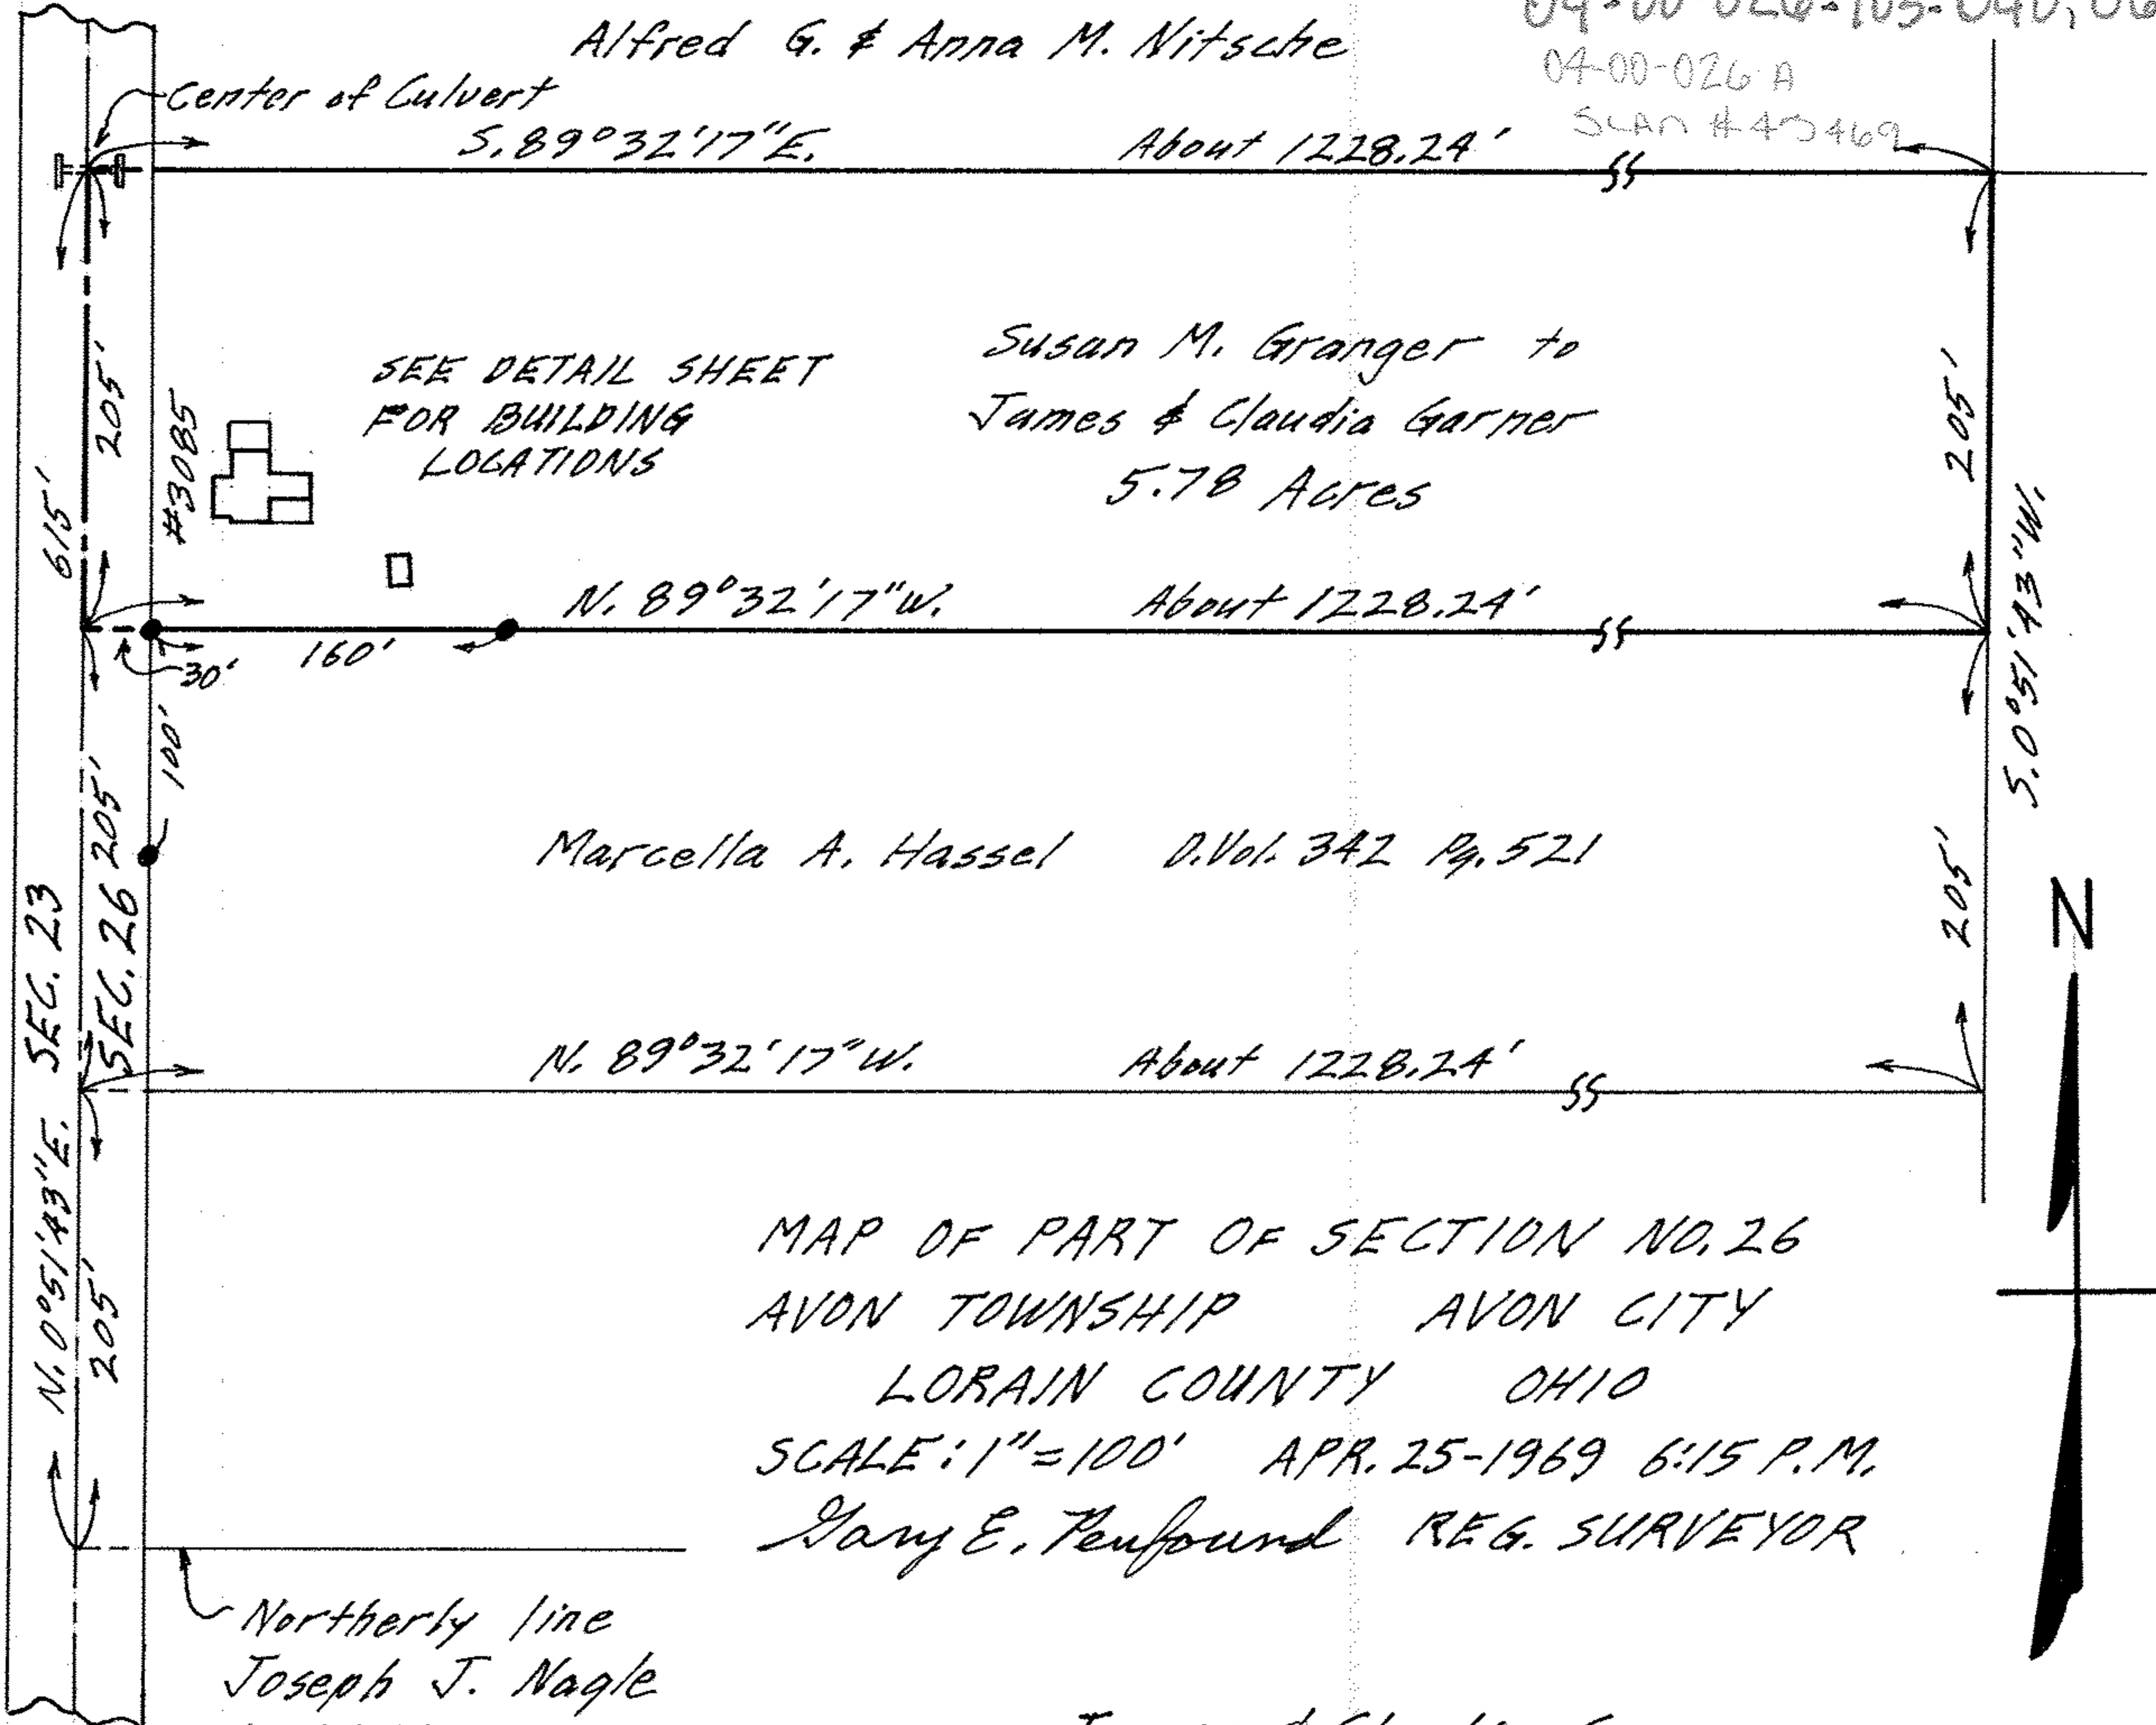 Alfred G. & Anna M. Nitsche
04-00-026 A
SCAN # 43469
Center of Culvert
S. 89°32'17"E. About 1228.24'
SEE DETAIL SHEET
FOR BUILDING
LOCATIONS
Susan M. Granger to
James & Claudia Garner
5.78 Acres
205'
#3085
615'
205'
S. 0°51'43"W.
N. 89°32'17"W. About 1228.24'
30'
160'
100'
205'
SEC. 26
SEC. 23
Marcella A. Hassel D.Vol. 342 Pg. 521
205'
N
N. 89°32'17"W. About 1228.24'
N. 0°51'43"E.
205'
MAP OF PART OF SECTION NO. 26
AVON TOWNSHIP AVON CITY
LORAIN COUNTY OHIO
SCALE: 1"=100' APR. 25-1969 6:15 P.M.
Gary E. Penfound REG. SURVEYOR
Northerly line
Joseph J. Nagle